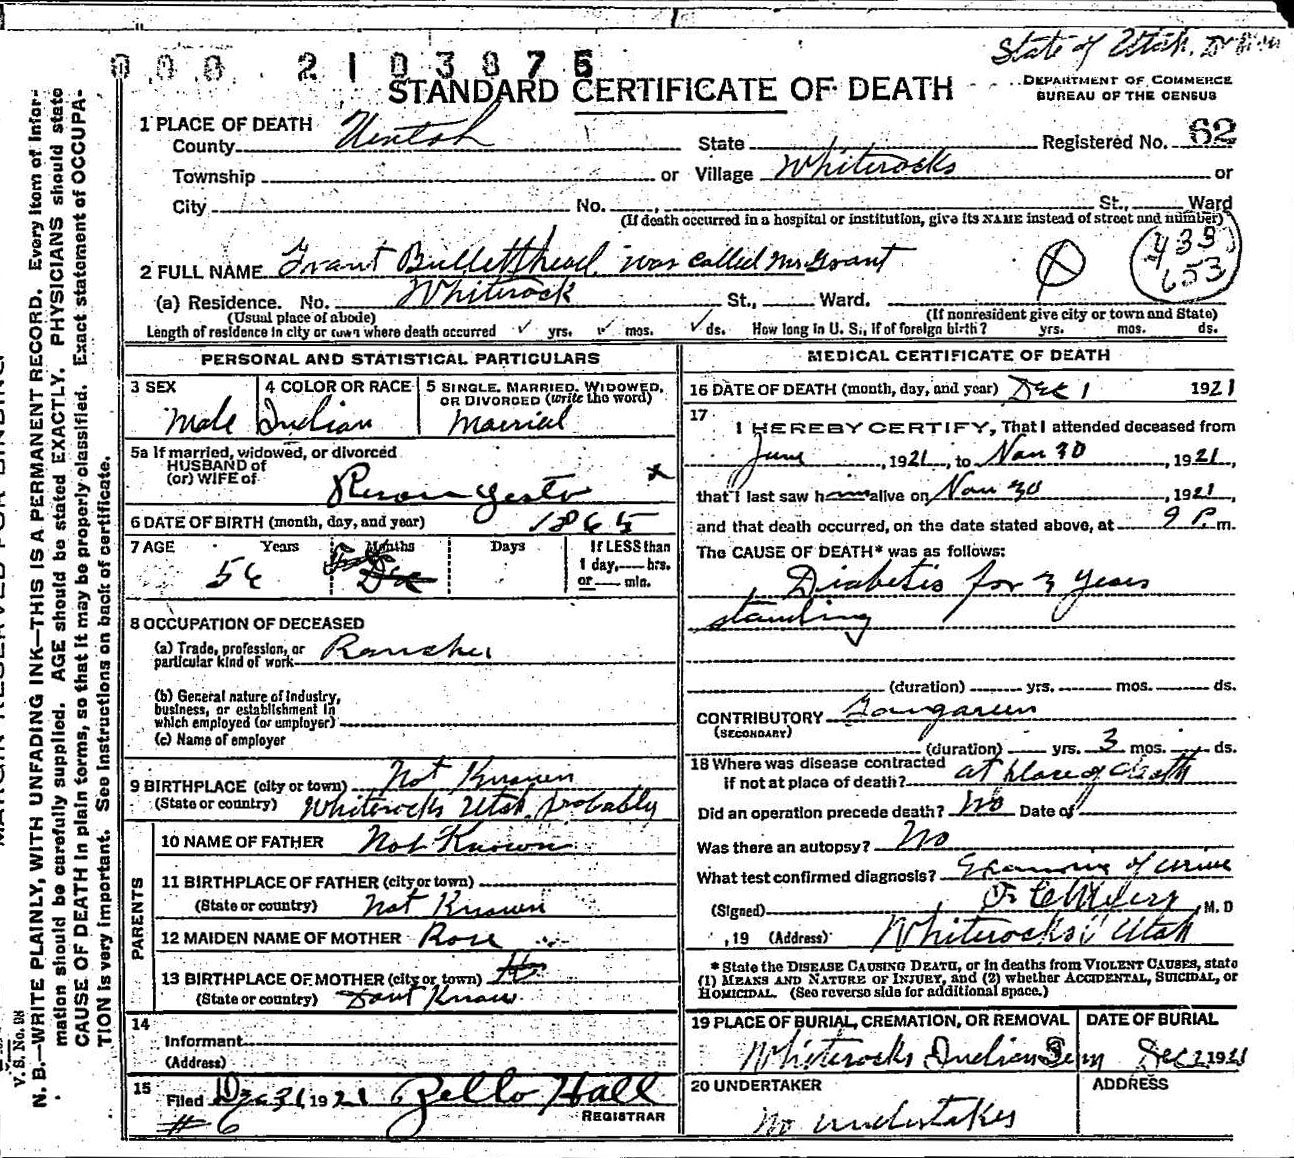 State of Utah.
000 2103875
STANDARD CERTIFICATE OF DEATH
DEPARTMENT OF COMMERCE
BUREAU OF THE CENSUS
1 PLACE OF DEATH
County Uintah State Registered No. 62
Township or Village Whiterocks or
City No. St., Ward
(If death occurred in a hospital or institution, give its NAME instead of street and number)
433
653
2 FULL NAME Grant Bulletthead was called Mr Grant
(a) Residence. No. Whiterock St., Ward.
(Usual place of abode) (If nonresident give city or town and State)
Length of residence in city or town where death occurred yrs. mos. ds. How long in U. S., if of foreign birth? yrs. mos. ds.
PERSONAL AND STATISTICAL PARTICULARS
3 SEX 4 COLOR OR RACE 5 SINGLE, MARRIED, WIDOWED, OR DIVORCED (write the word)
Male Indian Married
5a If married, widowed, or divorced
HUSBAND of
(or) WIFE of
6 DATE OF BIRTH (month, day, and year) 1865
7 AGE Years Months Days If LESS than
56 Dec 1 day, hrs.
or min.
8 OCCUPATION OF DECEASED
(a) Trade, profession, or
particular kind of work Rancher
(b) General nature of industry,
business, or establishment in
which employed (or employer)
(c) Name of employer
9 BIRTHPLACE (city or town) Not Known
(State or country) Whiterocks Utah probably
PARENTS
10 NAME OF FATHER Not Known
11 BIRTHPLACE OF FATHER (city or town)
(State or country) Not Known
12 MAIDEN NAME OF MOTHER Rose
13 BIRTHPLACE OF MOTHER (city or town)
(State or country) Dont Know
14
Informant
(Address)
15
Filed Dec 31, 1921 Zello Hall
REGISTRAR
# 6
MEDICAL CERTIFICATE OF DEATH
16 DATE OF DEATH (month, day, and year) Dec 1 1921
17
I HEREBY CERTIFY, That I attended deceased from
June, 1921, to Nov 30, 1921,
that I last saw him alive on Nov 30, 1921,
and that death occurred, on the date stated above, at 9 P. m.
The CAUSE OF DEATH* was as follows:
Diabetis for 3 years
standing
(duration) yrs. mos. ds.
CONTRIBUTORY Gangareen
(SECONDARY)
(duration) yrs. 3 mos. ds.
18 Where was disease contracted
if not at place of death? at place of death
Did an operation precede death? No Date of
Was there an autopsy? No
What test confirmed diagnosis? of urine
(Signed) M. D
, 19 (Address) Whiterocks, Utah
* State the DISEASE CAUSING DEATH, or in deaths from VIOLENT CAUSES, state
(1) MEANS AND NATURE OF INJURY, and (2) whether ACCIDENTAL, SUICIDAL, or
HOMICIDAL. (See reverse side for additional space.)
19 PLACE OF BURIAL, CREMATION, OR REMOVAL DATE OF BURIAL
Whiterocks Indian Dec 2 1921
20 UNDERTAKER ADDRESS
No undertaker
V. S. No. 98
N. B.—WRITE PLAINLY, WITH UNFADING INK—THIS IS A PERMANENT RECORD. Every item of infor-
mation should be carefully supplied. AGE should be stated EXACTLY. PHYSICIANS should state
CAUSE OF DEATH in plain terms, so that it may be properly classified. Exact statement of OCCUPA-
TION is very important. See instructions on back of certificate.